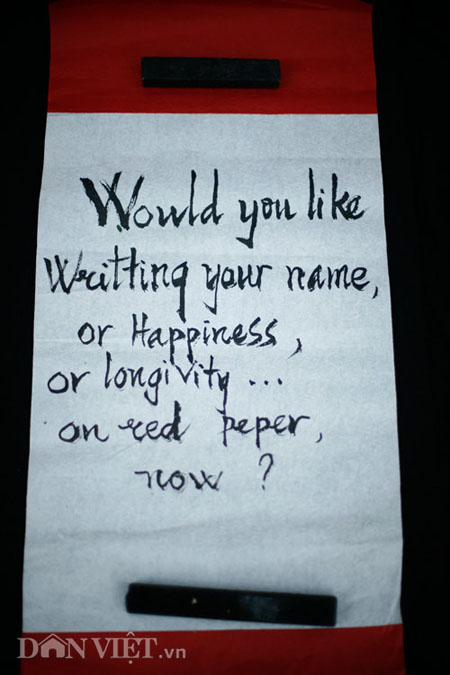 Would you like
Writting your name,
or Happiness,
or longivity ...
on red peper,
now ?
DÂN VIỆT.vn